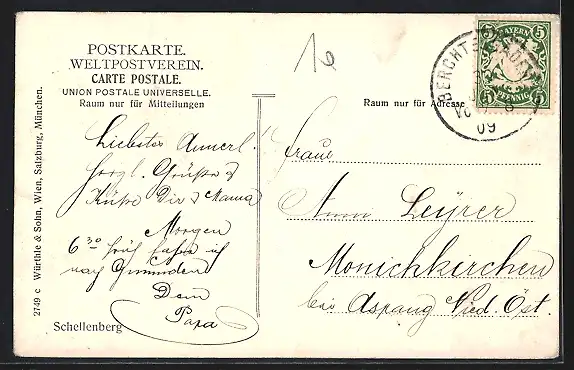 POSTKARTE.
WELTPOSTVEREIN.
CARTE POSTALE.
UNION POSTALE UNIVERSELLE.
Raum nur für Mitteilungen
Liebstes Annerl.
herzl. Grüße &
Küße Dir & Mama
Morgen
6 30 früh fahre ich
nach Gmunden
Dein
Papa
Schellenberg
2749 c Würthle & Sohn, Wien, Salzburg, München.
Raum nur für Adresse
Fraue
Anna Leyrer
Monichkirchen
bei Aspang Nied. Öst.
BAYERN
5 5
5 5
PFENNIG
BERCHTESGADEN
09